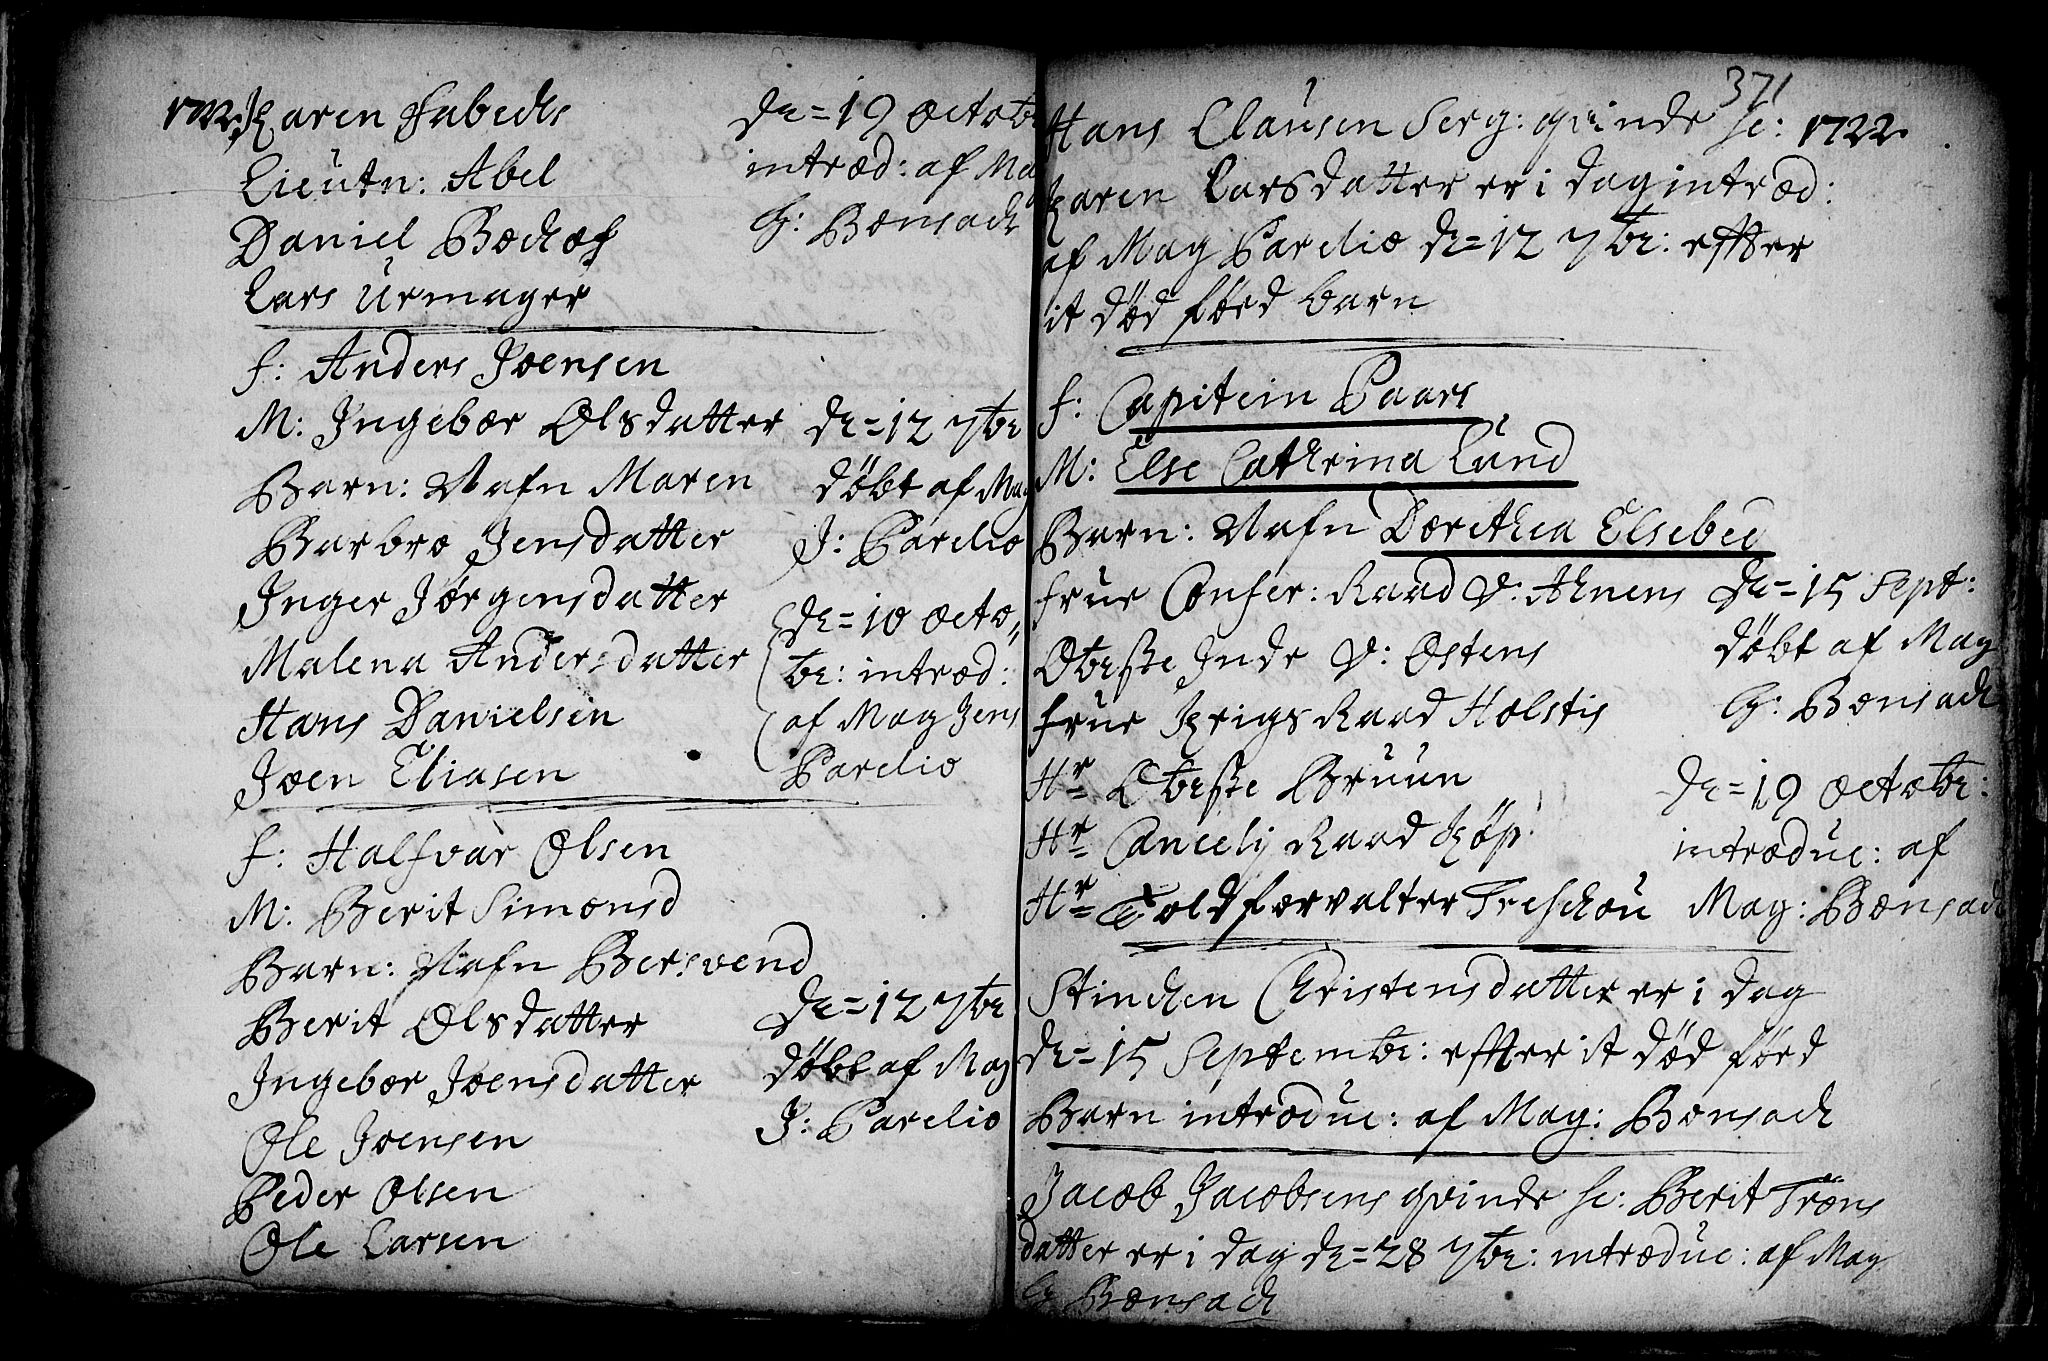 1722. Karen Fabeds
Lieutn: Abel
Daniel Bochof
Lars Urmager
dn = 19 octob
introd: af Ma
G: Bonsach
f: Anders Joensen
M: Ingebor Olsdatter
Barn: Nafn Maren
Barbro Jensdatter
Inger Jørgensdatter
Malena Andersdatter
Hans Danielsen
Joen Eliasen
dn = 12 7br
døbt af Mag
J: Parelio
dn = 10 octo
br: introd:
af Mag Jens
Parelio
f: Halfvár Olsen
M: Berit Simonsd
Barn: Nafn Bersvend
Berit Olsdatter
Ingebor Joensdatter
Ole Joensen
Peder Olsen
Ole Larsen
dn = 12 7br
døbt af Mag
J: Parelio
371
Hans Clausen Serg: qvinde sc: 1722.
Karen Larsdatter er i dag introd:
af Mag Parelio dn = 12 7br: effter
it død fød barn
f: Capitein Paars
M: Else Cathrina Lund
Barn: Nafn Dorithea Elsebe
frue Confer: Raad V: Ahnens
Obeste Inde V: Ostens
frue Krigs Raad Holstis
Hr Obeste Bruun
Hr Cancelij Raad Køp:
Hr Toldforvalter Treschou
dn = 15 Sept:
døbt af Mag
G: Bonsach
dn = 19 octobr:
introduc: af
Mag: Bonsach
Stinchen Christensdatter er i dag
dn = 15 Septembr: effter it død fød
Barn introduc: af Mag: Bonsach
Jacob Jacobsens qvinde sc: Berit Trøns
datter er i dag dn = 28 7br: introduc: af Mag
G Bonsach